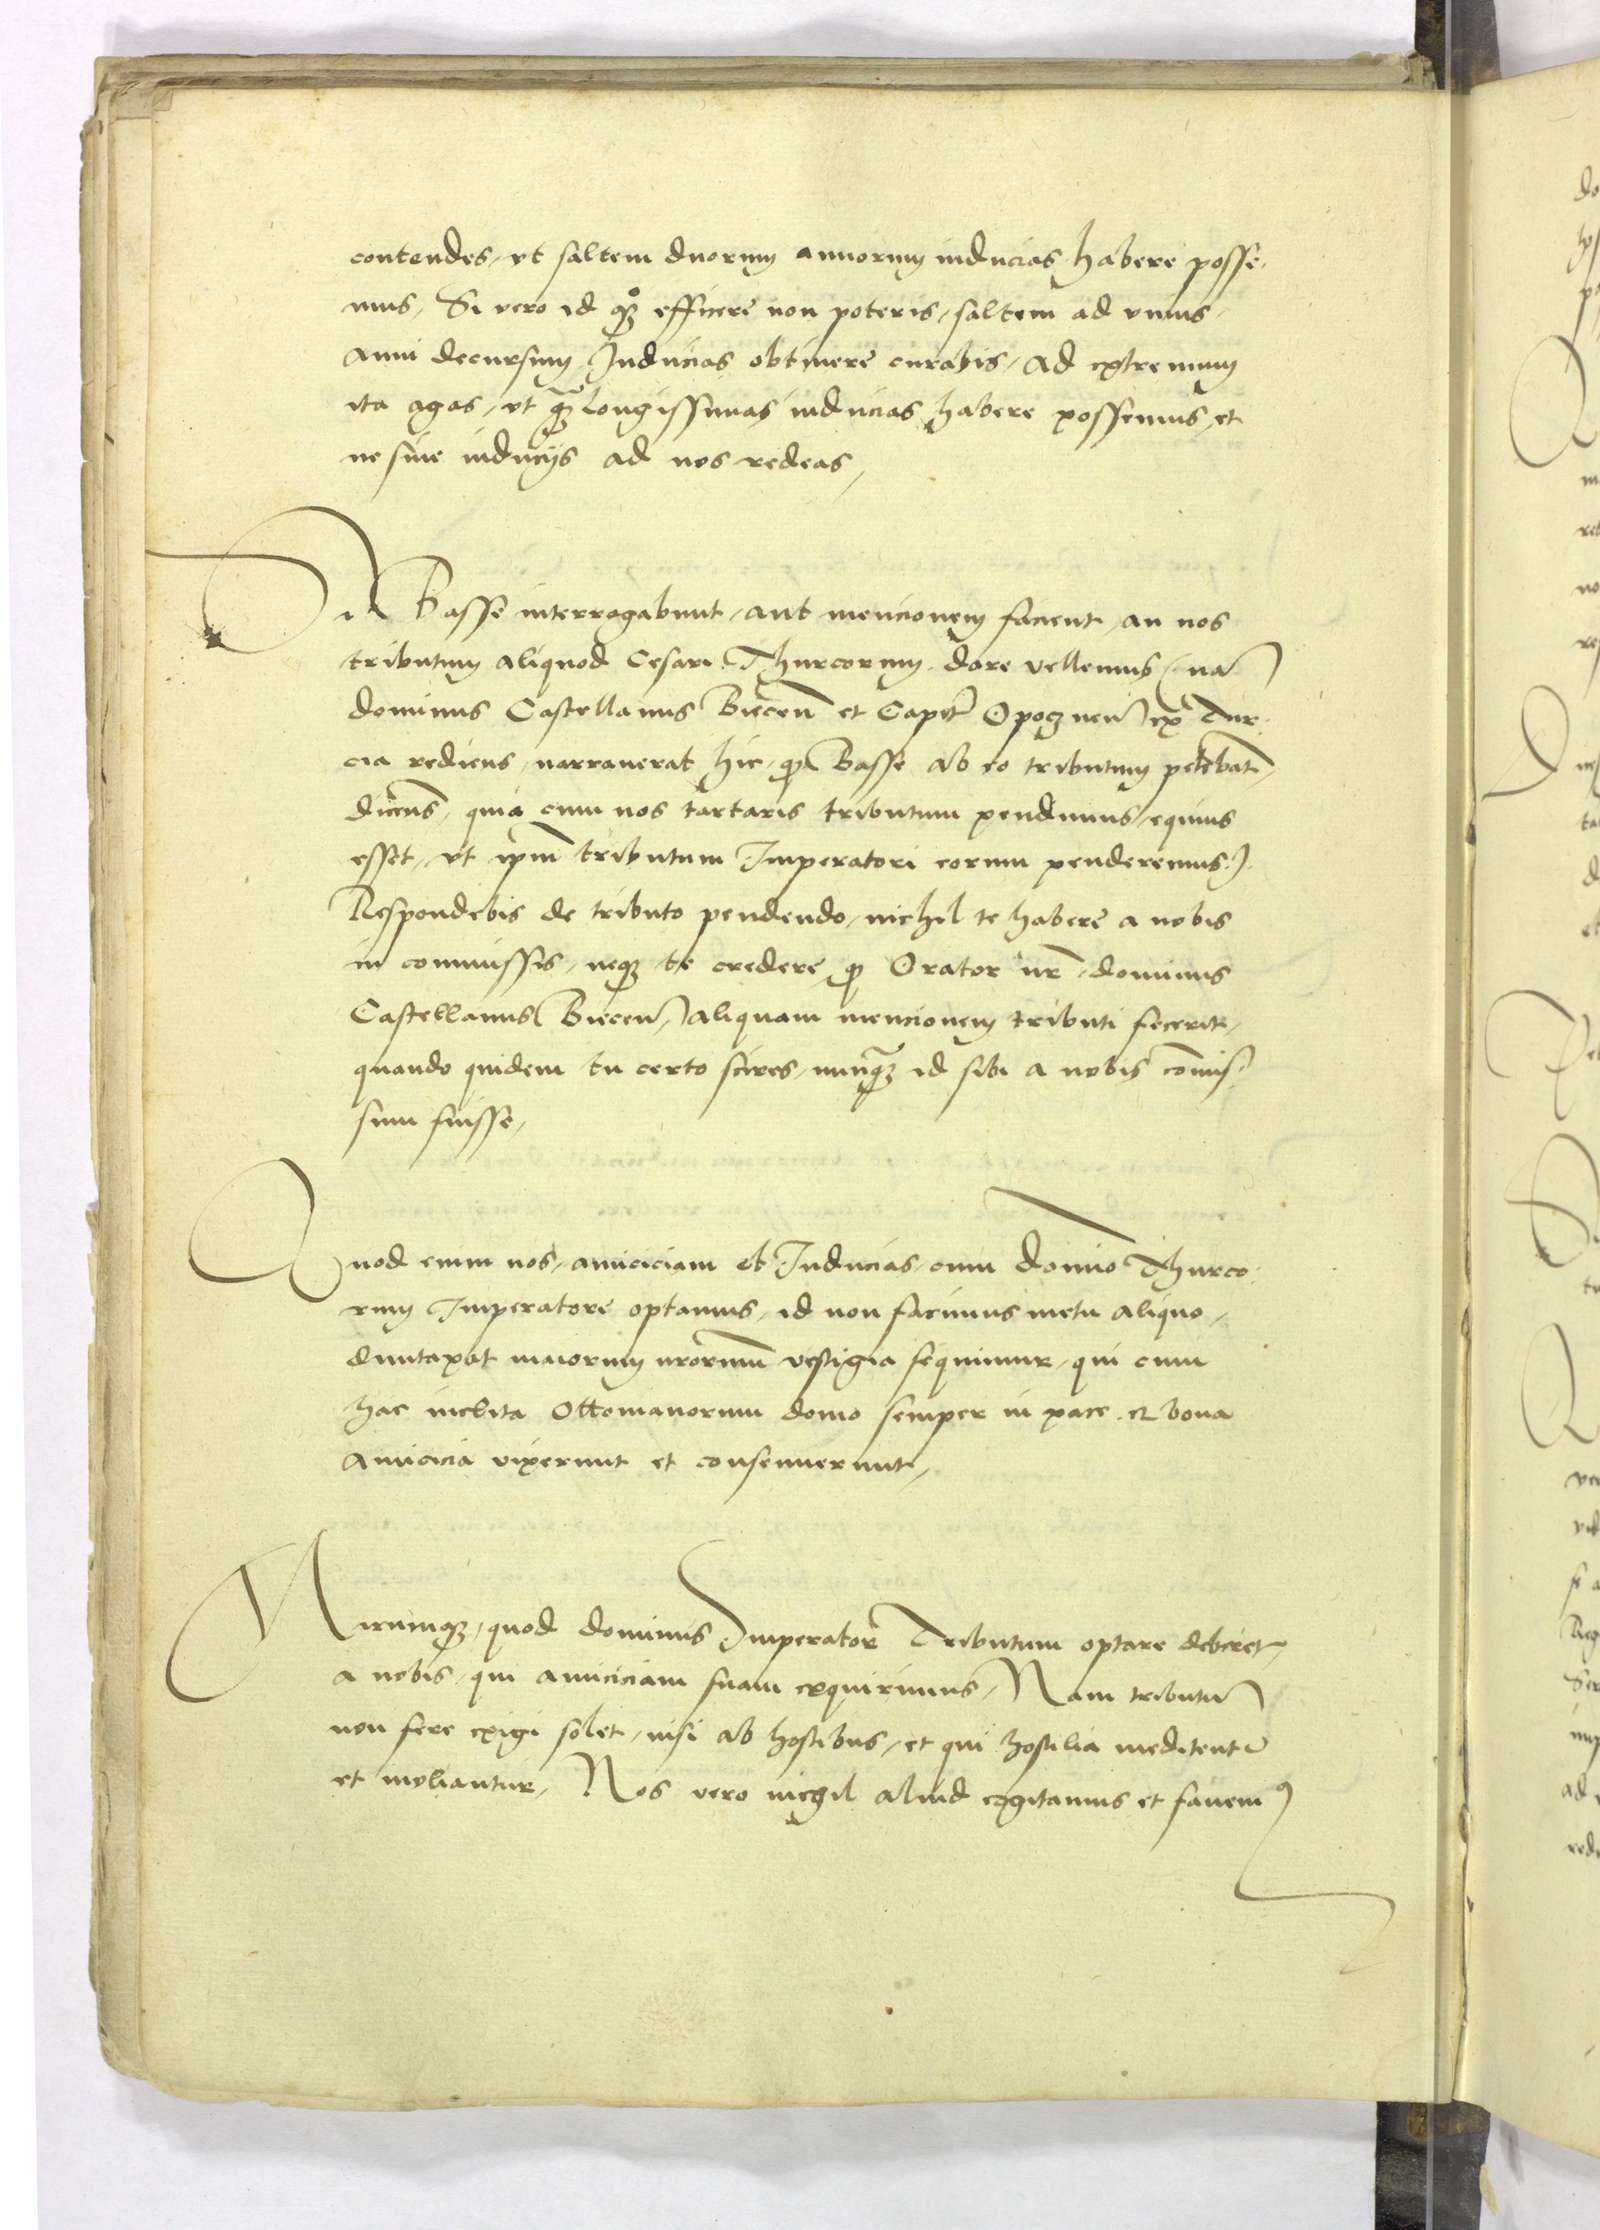 contendes, vt saltem duorum annorum inducias habere posse-
mus, Si vero id qꝫ efficere non poteris, saltem ad vnius
anni decursum Inducias obtinere curabis, Ad extremum
ita agas, vt qꝫ̃ longissimas inducias habere possemus, et
ne sine inducijs ad nos redeas,
Si Basse interrogabunt, aut mencionem facient, an nos
tributum aliquod Cesari Thurcorum dare vellemus (nã
dominus Castellanus Biecen̄ et Capit̄ Opoznen̄ ex Tur-
cia rediens, narrauerat hic, qꝫ Basse ab eo tributum petebãt,
dicens̄, quia cum nos tartaris tributum pendimus, equius
esset, vt ip̄m tributum Imperatori eorum penderemus).
Respondebis de tributo pendendo, nichil te habere a nobis
in commissis, neqꝫ te credere qꝫ Orator nr̄ dominus
Castellanus Biecen̄, aliquam mencionem tributi fecerit,
quando quidem tu certo scires, nunqꝫ̃ id sibi a nobis cõmis-
sum fuisse,
Quod enim nos, amiciciam et Inducias, cum domino Thurco-
rum Imperatore optamus, id non facimus metu aliquo,
duntaxat maiorum nr̄orum vestigia sequimur, qui cum
hac inclita Ottomanorum domo semper in pace et bona
amicicia vixerunt et consenuerunt,
Mirumqꝫ, quod dominus Imperator Tributum optare deberet
a nobis, qui amiciciam suam exquirimus, Nam tributũ
non fere exigi solet, nisi ab hostibus, et qui hostilia meditent̄
et moliantur, Nos vero nichil aliud cogitamus et fauemꝰ